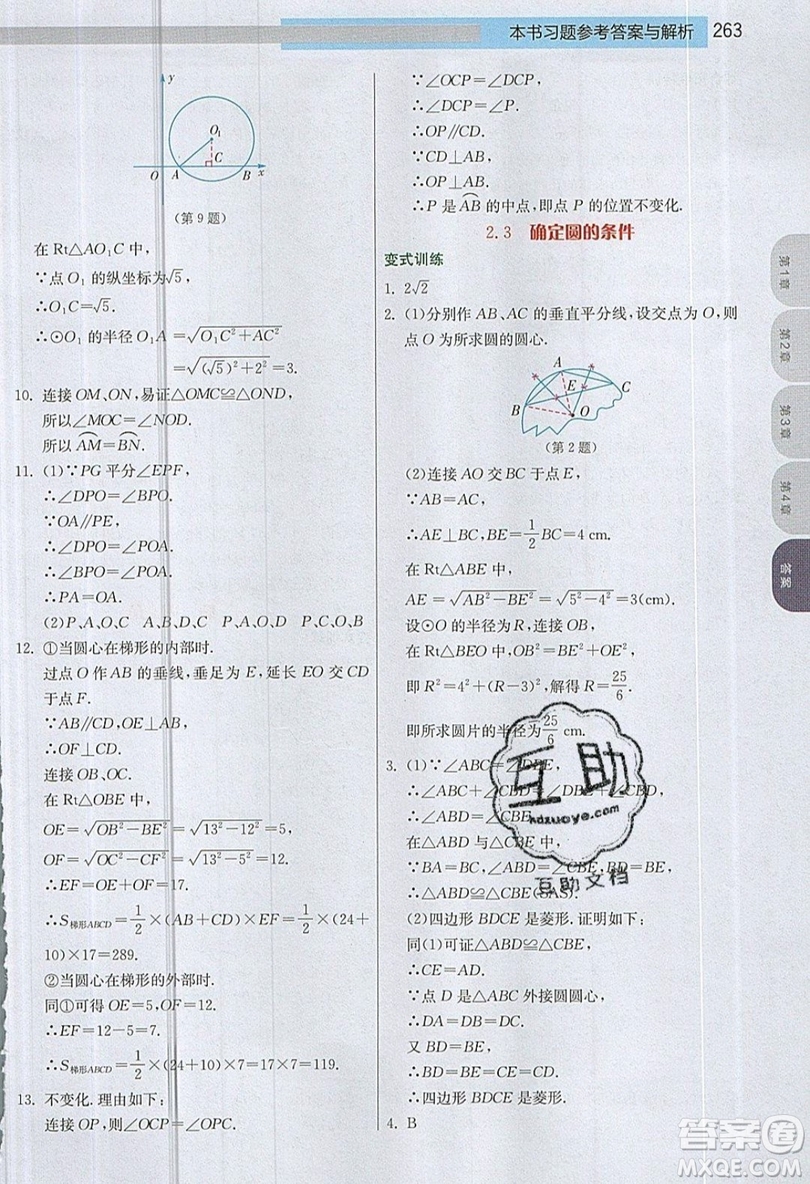 本书习题参考答案与解析 263
y
O₁
O A C B x
(第 9 题)
在 Rt△AO₁C 中,
∵点 O₁ 的纵坐标为√5,
∴O₁C=√5.
∴⊙O₁ 的半径 O₁A=√(O₁C²+AC²)
=√((√5)²+2²)=3.
10. 连接 OM、ON,易证△OMC≌△OND,
所以∠MOC=∠NOD.
所以 A͡M=B͡N.
11. (1)∵PG 平分∠EPF,
∴∠DPO=∠BPO.
∵OA∥PE,
∴∠DPO=∠POA.
∴∠BPO=∠POA.
∴PA=OA.
(2)P、A、O、C A、B、D、C P、A、O、D P、C、O、B
12. ①当圆心在梯形的内部时.
过点 O 作 AB 的垂线,垂足为 E,延长 EO 交 CD
于点 F.
∵AB∥CD,OE⊥AB,
∴OF⊥CD.
连接 OB、OC.
在 Rt△OBE 中,
OE=√(OB²−BE²)=√(13²−12²)=5,
OF=√(OC²−CF²)=√(13²−5²)=12.
∴EF=OE+OF=17.
∴S梯形ABCD=1/2×(AB+CD)×EF=1/2×(24+
10)×17=289.
②当圆心在梯形的外部时.
同①可得 OE=5,OF=12.
∴EF=12−5=7.
∴S梯形ABCD=1/2×(24+10)×7=17×7=119.
13. 不变化. 理由如下:
连接 OP,则∠OCP=∠OPC.
∵∠OCP=∠DCP,
∴∠DCP=∠P.
∴OP∥CD.
∵CD⊥AB,
∴OP⊥AB.
∴P 是A͡B的中点,即点 P 的位置不变化.
2.3 确定圆的条件
变式训练
1. 2√2
2. (1)分别作 AB、AC 的垂直平分线,设交点为 O,则
点 O 为所求圆的圆心.
A
E C
B O
(第 2 题)
(2)连接 AO 交 BC 于点 E,
∵AB=AC,
∴AE⊥BC,BE=1/2BC=4 cm.
在 Rt△ABE 中,
AE=√(AB²−BE²)=√(5²−4²)=3(cm).
设⊙O 的半径为 R,连接 OB,
在 Rt△BEO 中,OB²=BE²+OE²,
即 R²=4²+(R−3)²,解得 R=25/6.
即所求圆片的半径为25/6 cm.
3. (1)∵∠ABC=∠DBE,
∴∠ABC+∠CBD=∠DBE+∠CBD.
∴∠ABD=∠CBE.
在△ABD 与△CBE 中,
∵BA=BC,∠ABD=∠CBE,BD=BE,
∴△ABD≌△CBE(SAS).
(2)四边形 BDCE 是菱形. 证明如下:
同(1)可证△ABD≌△CBE,
∴CE=AD.
∵点 D 是△ABC 外接圆圆心,
∴DA=DB=DC.
又∵BD=BE,
∴BD=BE=CE=CD.
∴四边形 BDCE 是菱形.
4. B
第1章
第2章
第3章
第4章
答案
互助
hdzuoye.com
互助文档
答案圈
MXQE.COM